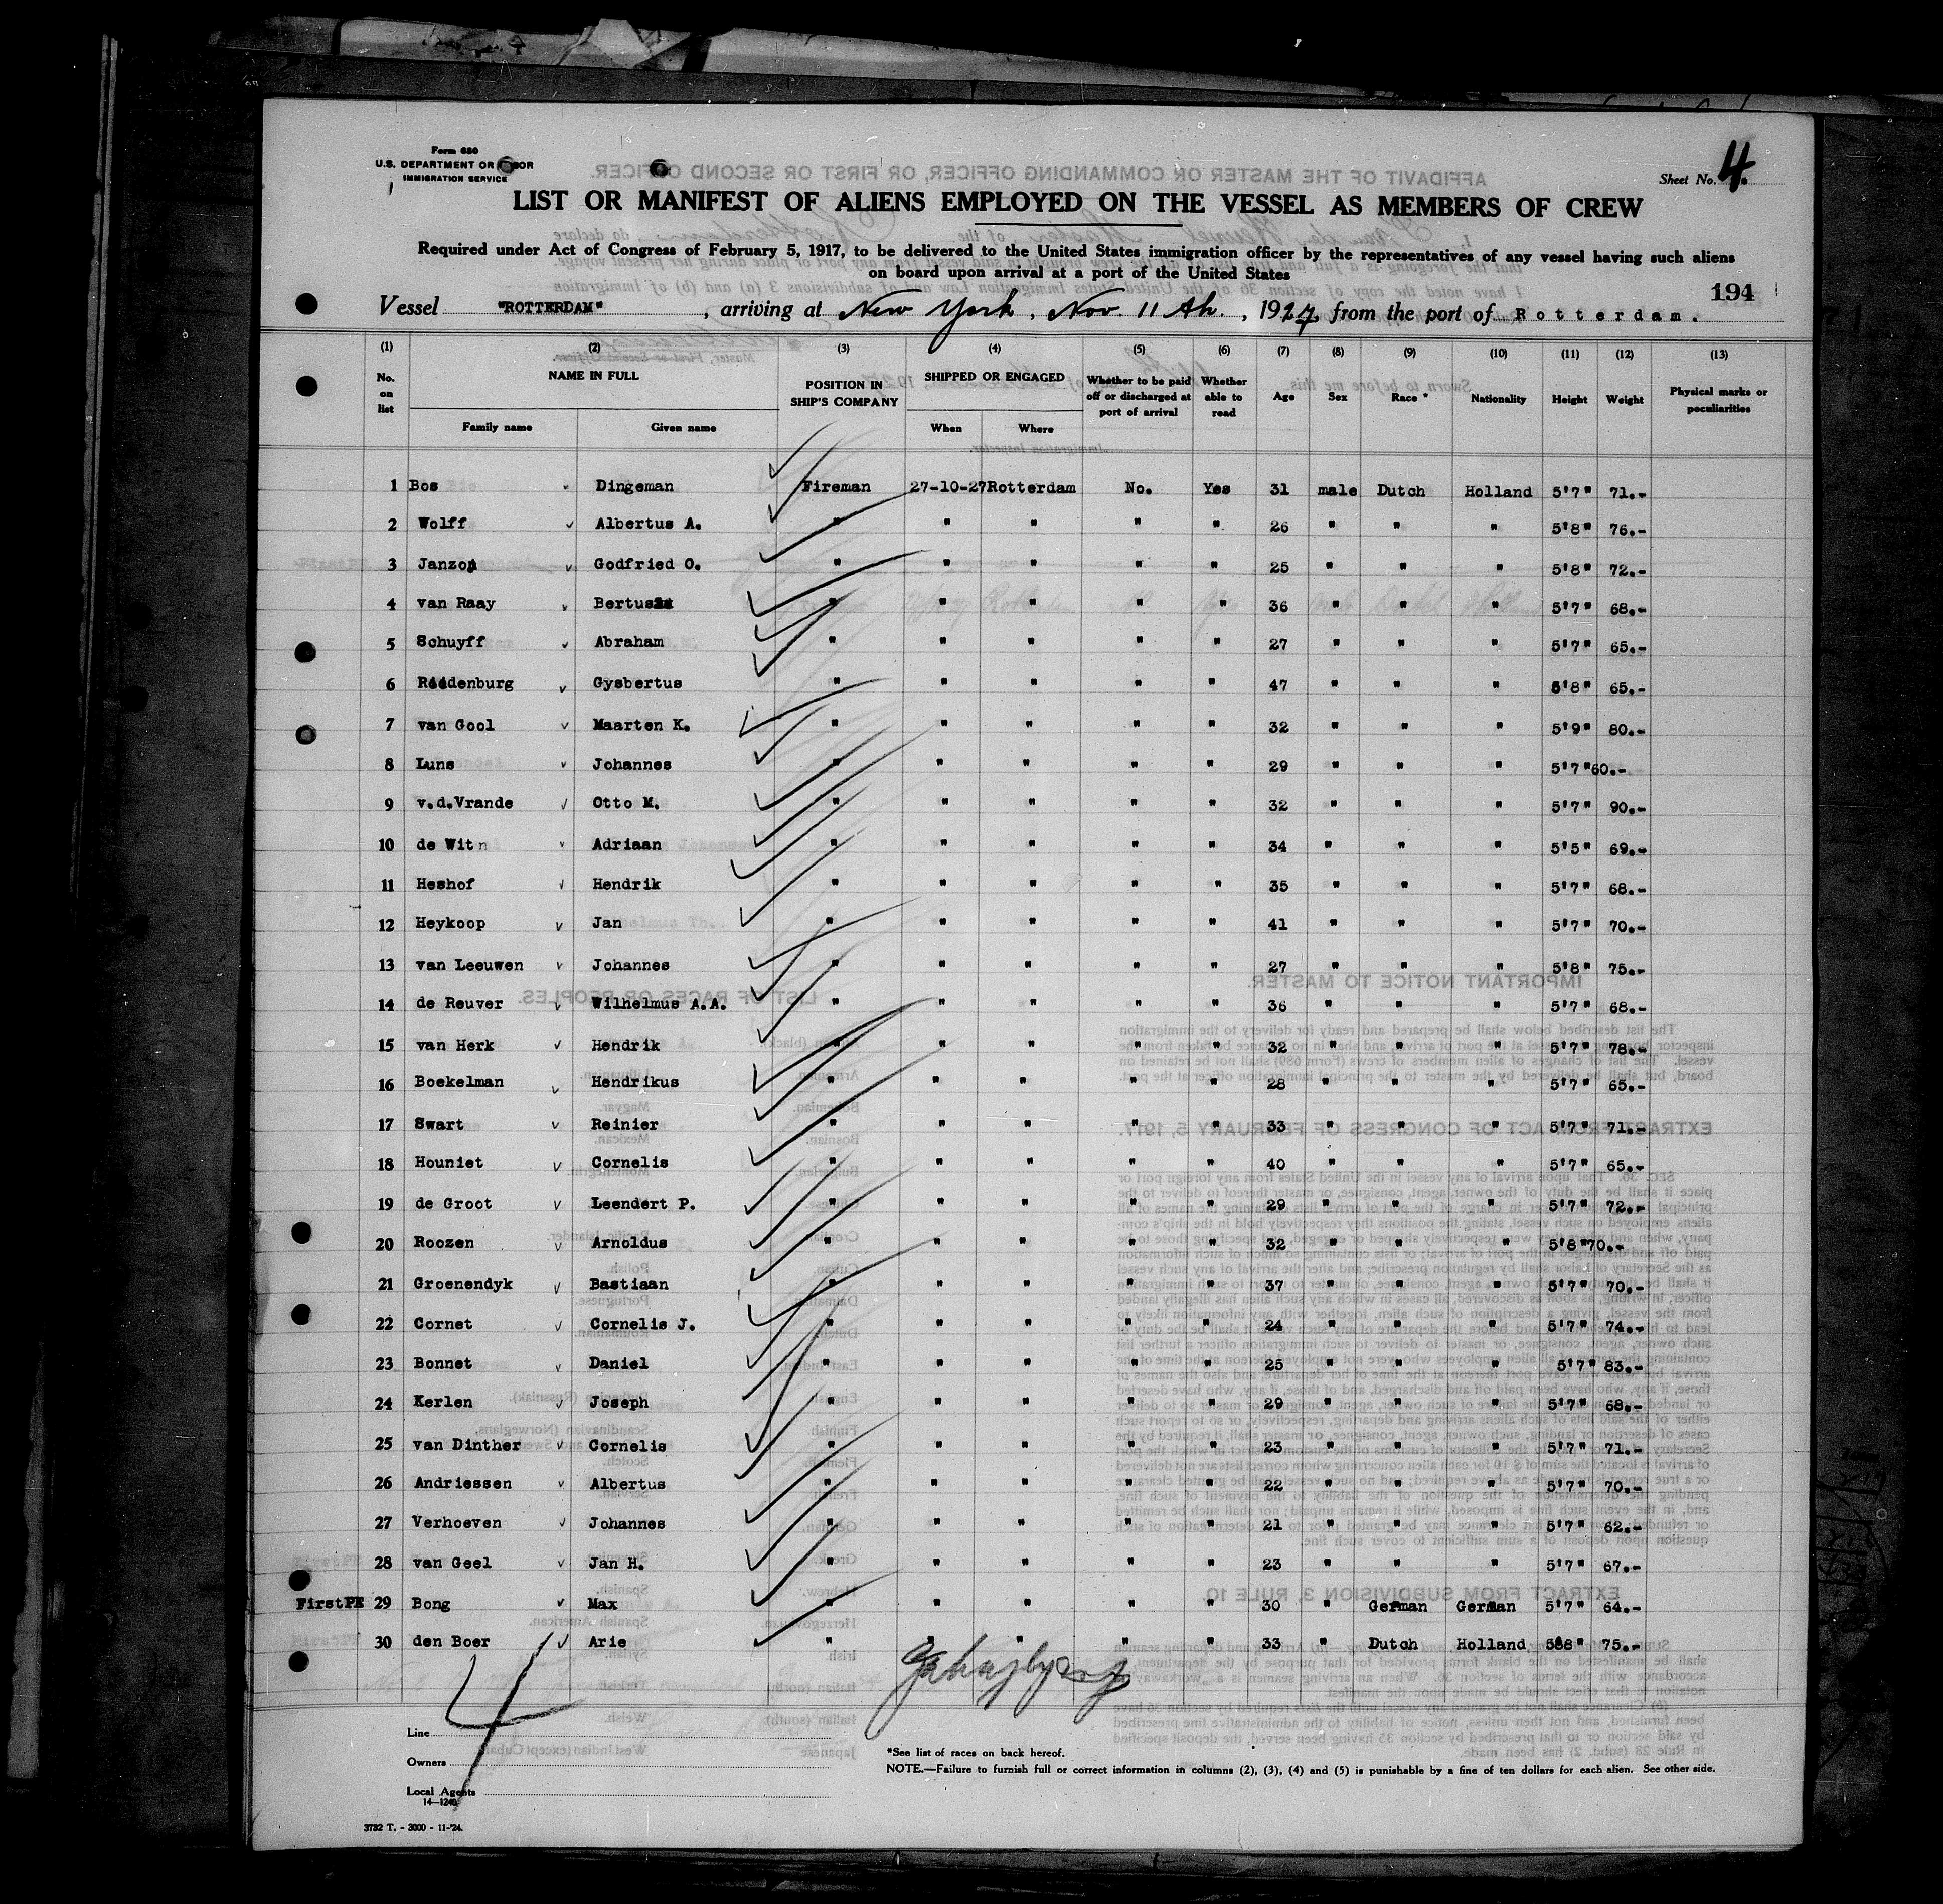 Form 680
U.S. DEPARTMENT OF LABOR
IMMIGRATION SERVICE
Sheet No. 4.
LIST OR MANIFEST OF ALIENS EMPLOYED ON THE VESSEL AS MEMBERS OF CREW
Required under Act of Congress of February 5, 1917, to be delivered to the United States immigration officer by the representatives of any vessel having such aliens
on board upon arrival at a port of the United States
194
Vessel "ROTTERDAM", arriving at New York, Nov. 11 th., 1927 from the port of Rotterdam.
(1) (2) (3) (4) (5) (6) (7) (8) (9) (10) (11) (12) (13)
No. on list NAME IN FULL POSITION IN SHIP'S COMPANY SHIPPED OR ENGAGED Whether to be paid off or discharged at port of arrival Whether able to read Age Sex Race * Nationality Height Weight Physical marks or peculiarities
Family name Given name When Where
1 Bos Dingeman Fireman 27-10-27 Rotterdam No. Yes 31 male Dutch Holland 5'7" 71.-
2 Wolff Albertus A. " " " " " 26 " " " 5'8" 76.-
3 Janzon Godfried O. " " " " " 25 " " " 5'8" 72.-
4 van Raay Bertus " " " " " 36 " " " 5'7" 68.-
5 Schuyff Abraham " " " " " 27 " " " 5'7" 65.-
6 Roodenburg Gysbertus " " " " " 47 " " " 5'8" 65.-
7 van Gool Maarten K. " " " " " 32 " " " 5'9" 80.-
8 Luns Johannes " " " " " 29 " " " 5'7" 60.-
9 v.d.Vrande Otto M. " " " " " 32 " " " 5'7" 90.-
10 de Wit Adriaan " " " " " 34 " " " 5'5" 69.-
11 Heshof Hendrik " " " " " 35 " " " 5'7" 68.-
12 Heykoop Jan " " " " " 41 " " " 5'7" 70.-
13 van Leeuwen Johannes " " " " " 27 " " " 5'8" 75.-
14 de Reuver Wilhelmus A.A. " " " " " 36 " " " 5'7" 68.-
15 van Herk Hendrik " " " " " 32 " " " 5'7" 78.-
16 Boekelman Hendrikus " " " " " 28 " " " 5'7" 65.-
17 Swart Reinier " " " " " 33 " " " 5'7" 71.-
18 Houniet Cornelis " " " " " 40 " " " 5'7" 65.-
19 de Groot Leendert P. " " " " " 29 " " " 5'7" 72.-
20 Roozen Arnoldus " " " " " 32 " " " 5'8" 70.-
21 Groenendyk Bastiaan " " " " " 37 " " " 5'7" 70.-
22 Cornet Cornelis J. " " " " " 24 " " " 5'7" 74.-
23 Bonnet Daniel " " " " " 25 " " " 5'7" 83.-
24 Kerlen Joseph " " " " " 29 " " " 5'7" 68.-
25 van Dinther Cornelis " " " " " 23 " " " 5'7" 71.-
26 Andriessen Albertus " " " " " 22 " " " 5'7" 70.-
27 Verhoeven Johannes " " " " " 21 " " " 5'7" 62.-
28 van Geel Jan H. " " " " " 23 " " " 5'7" 67.-
FirstPE 29 Bong Max " " " " " 30 " German German 5'7" 64.-
30 den Boer Arie " " " " " 33 " Dutch Holland 5'8" 75.-
4
Line
Owners
Local Agents
14-1240
*See list of races on back hereof.
NOTE.—Failure to furnish full or correct information in columns (2), (3), (4) and (5) is punishable by a fine of ten dollars for each alien. See other side.
3732 T. - 3000 - 11-'24.